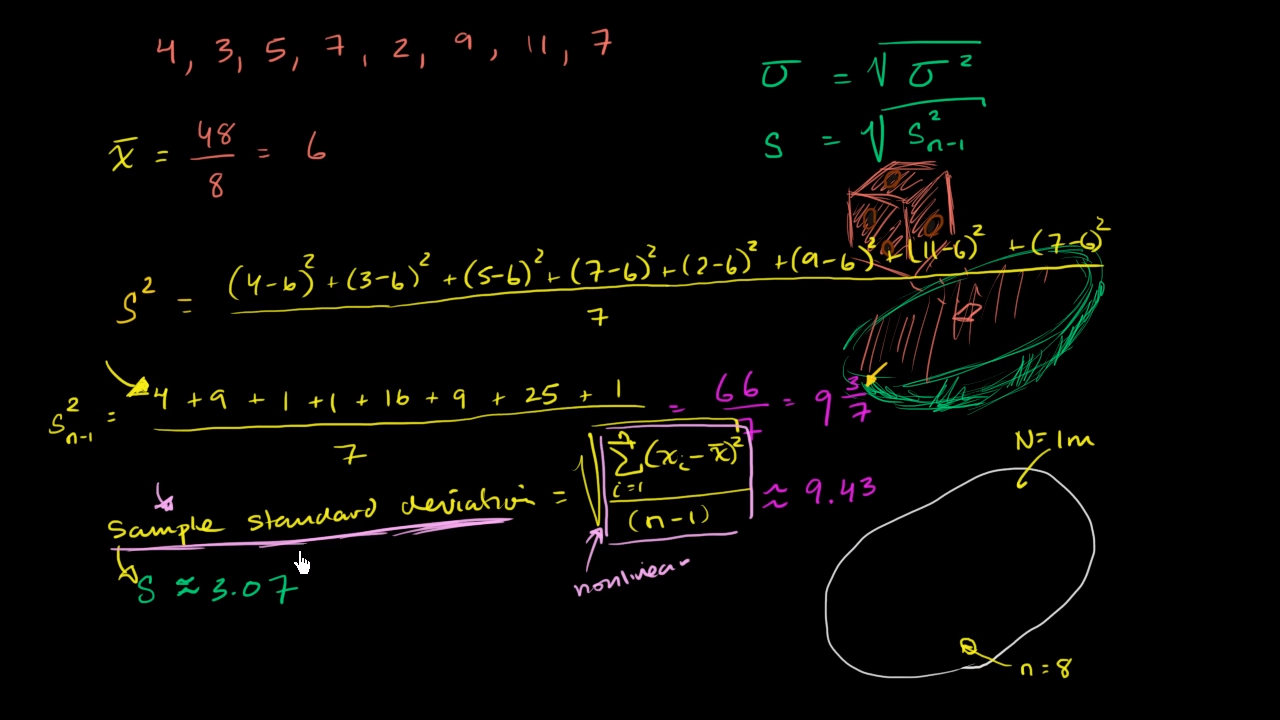 4, 3, 5, 7, 2, 9, 11, 7
σ = √σ²
x̄ = 48/8 = 6
s = √s²ₙ₋₁
s² = ((4-6)² + (3-6)² + (5-6)² + (7-6)² + (2-6)² + (9-6)² + (11-6)² + (7-6)²)/7
s²ₙ₋₁ = (4 + 9 + 1 + 1 + 16 + 9 + 25 + 1)/7 = 66/7 = 9 3/7
N=1m
sample standard deviation = √(∑ⁿᵢ₌₁(xᵢ-x̄)²/(n-1)) ≈ 9.43
nonlinear
s ≈ 3.07
n=8